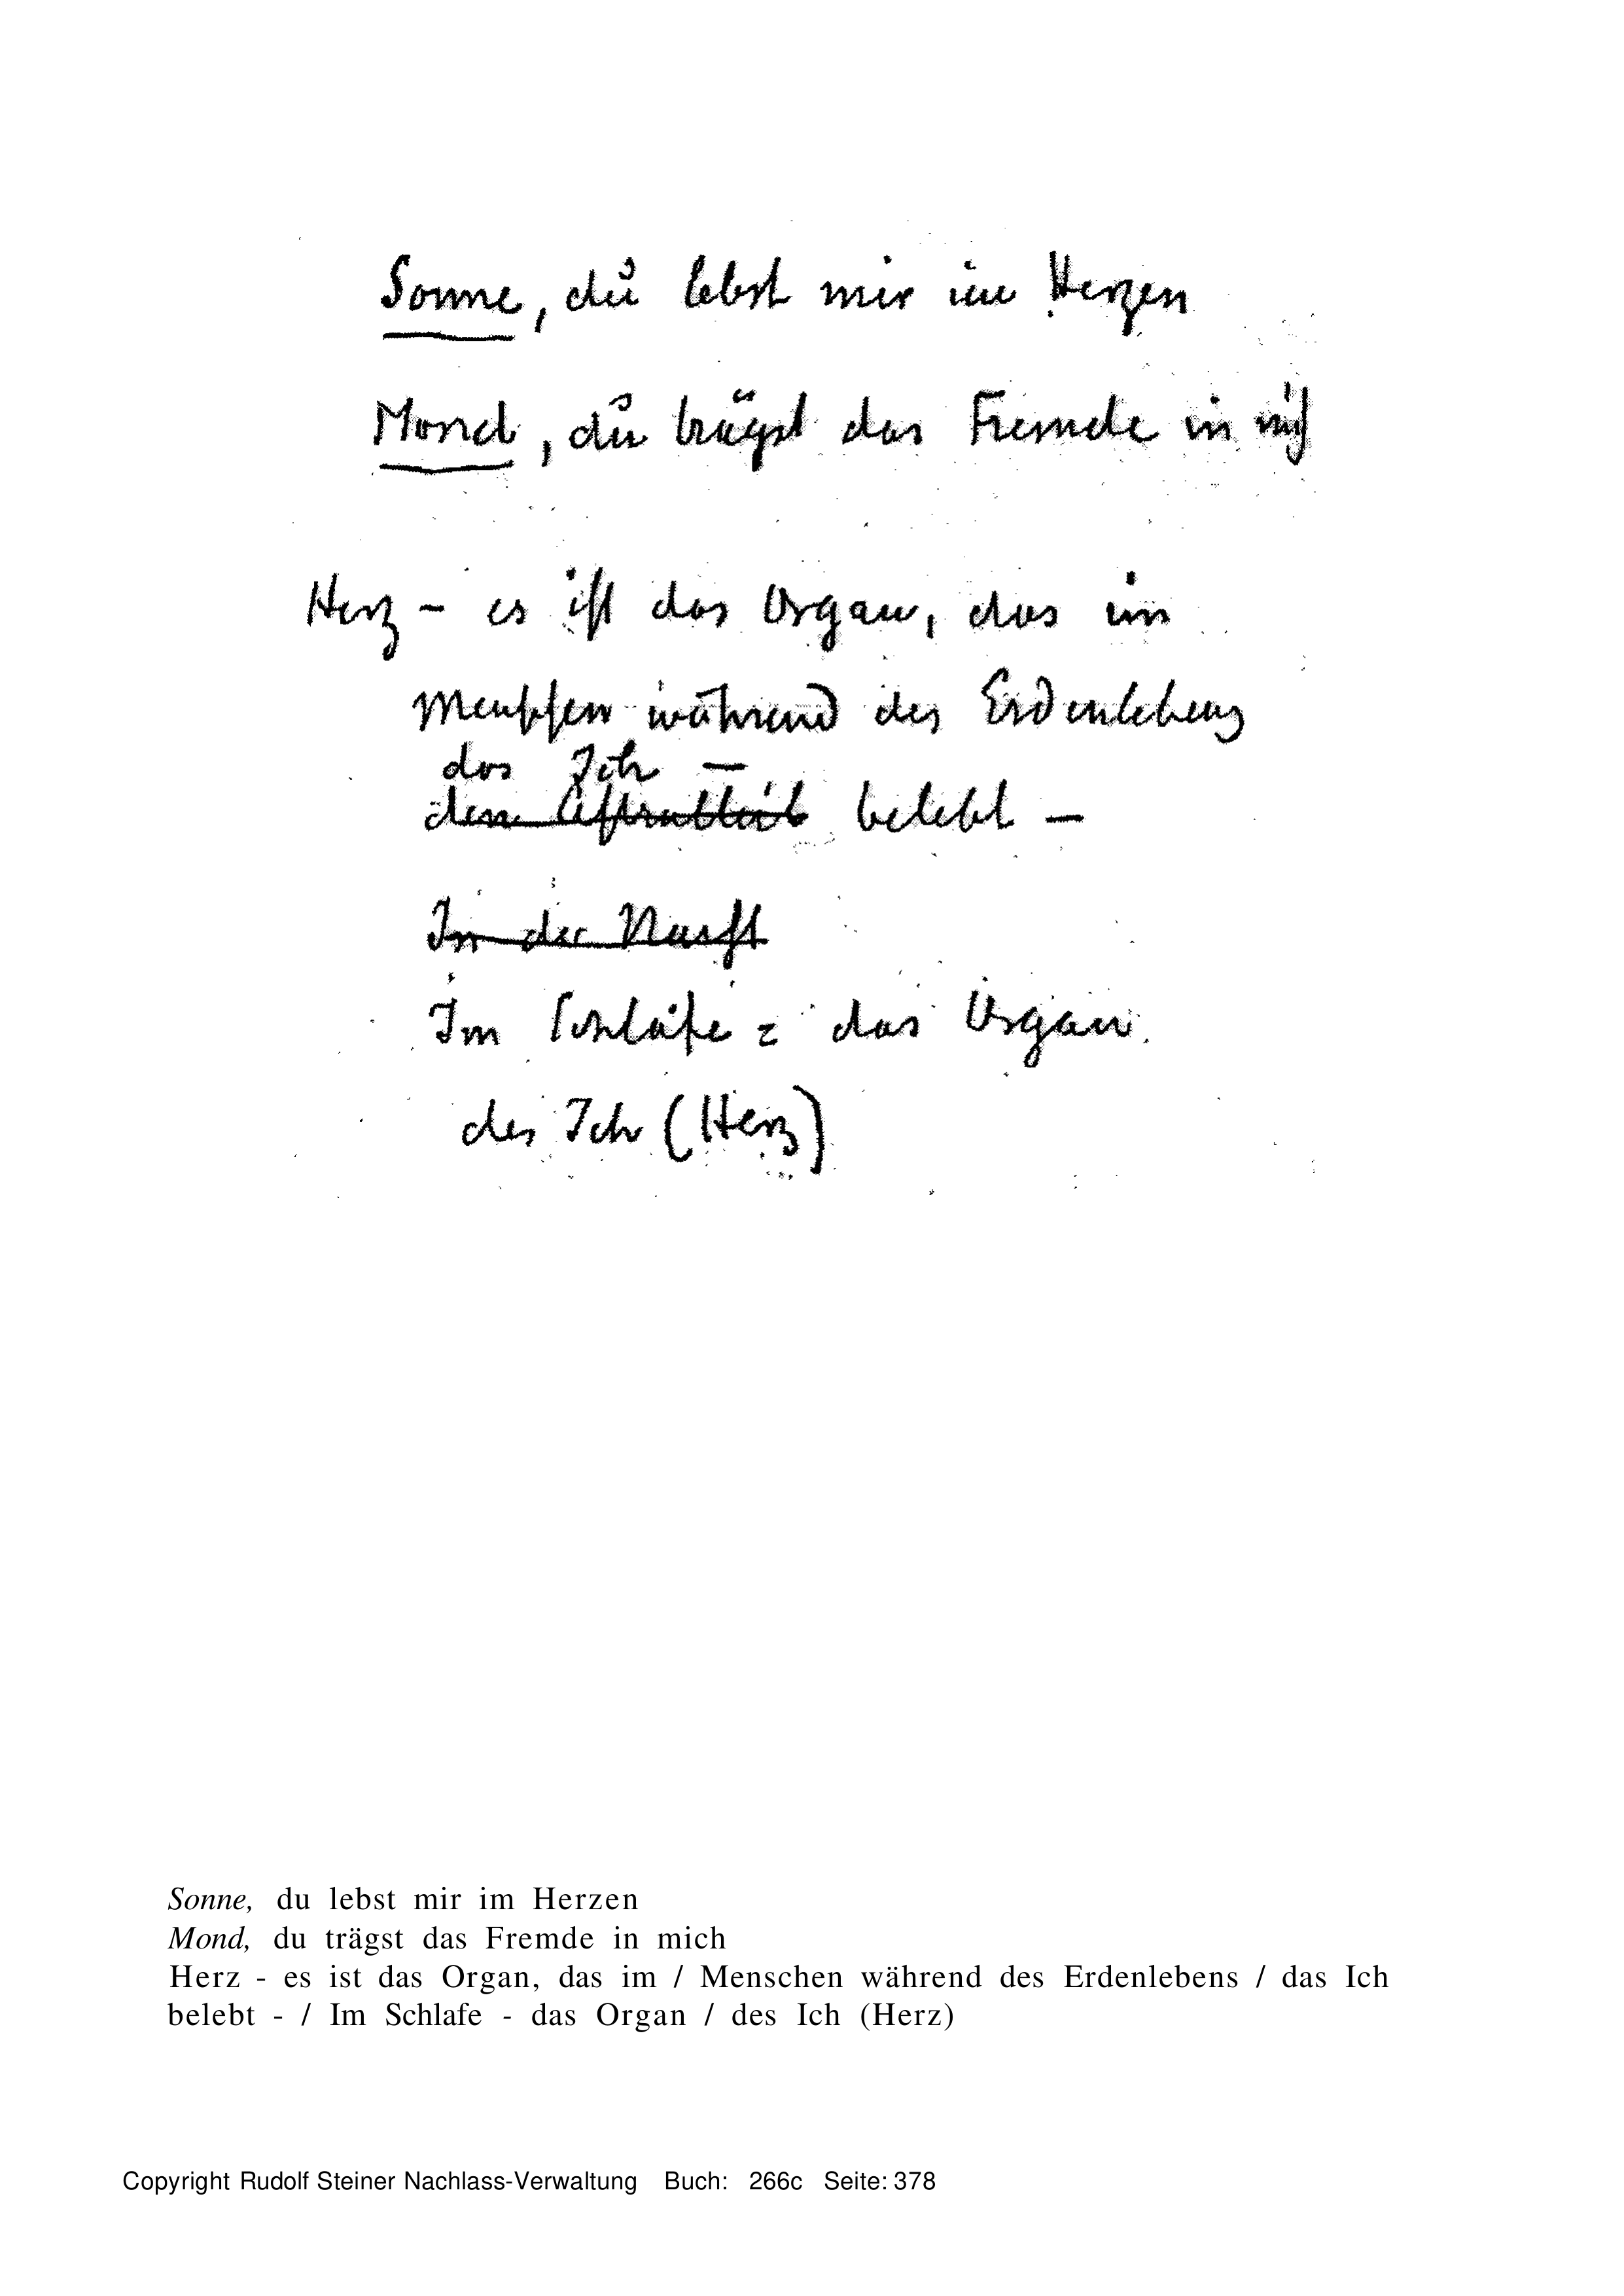 Sonne, du lebst mir im Herzen
Mond, du trägst das Fremde in mich
Herz - es ist das Organ, das im
Menschen während des Erdenlebens
das Ich -
den Astralleib belebt -
In der Nacht
Im Schlafe = das Organ
des Ich (Herz)
Sonne, du lebst mir im Herzen
Mond, du trägst das Fremde in mich
Herz - es ist das Organ, das im / Menschen während des Erdenlebens / das Ich
belebt - / Im Schlafe - das Organ / des Ich (Herz)
Copyright Rudolf Steiner Nachlass-Verwaltung Buch: 266c Seite: 378